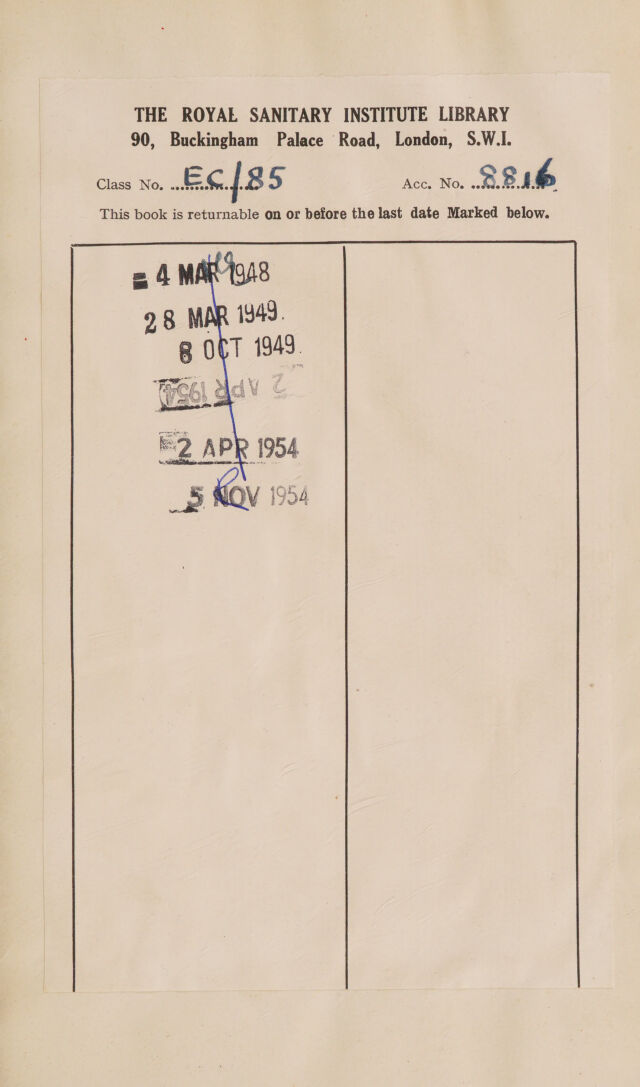 THE ROYAL SANITARY INSTITUTE LIBRARY
90, Buckingham Palace Road, London, S.W.I.
Class No. EC/85 Acc. No. 8816
This book is returnable on or before the last date Marked below.
4 MAR 1948
28 MAR 1949.
8 OCT 1949.
2 APR 1954
2 APR 1954
5 NOV 1954